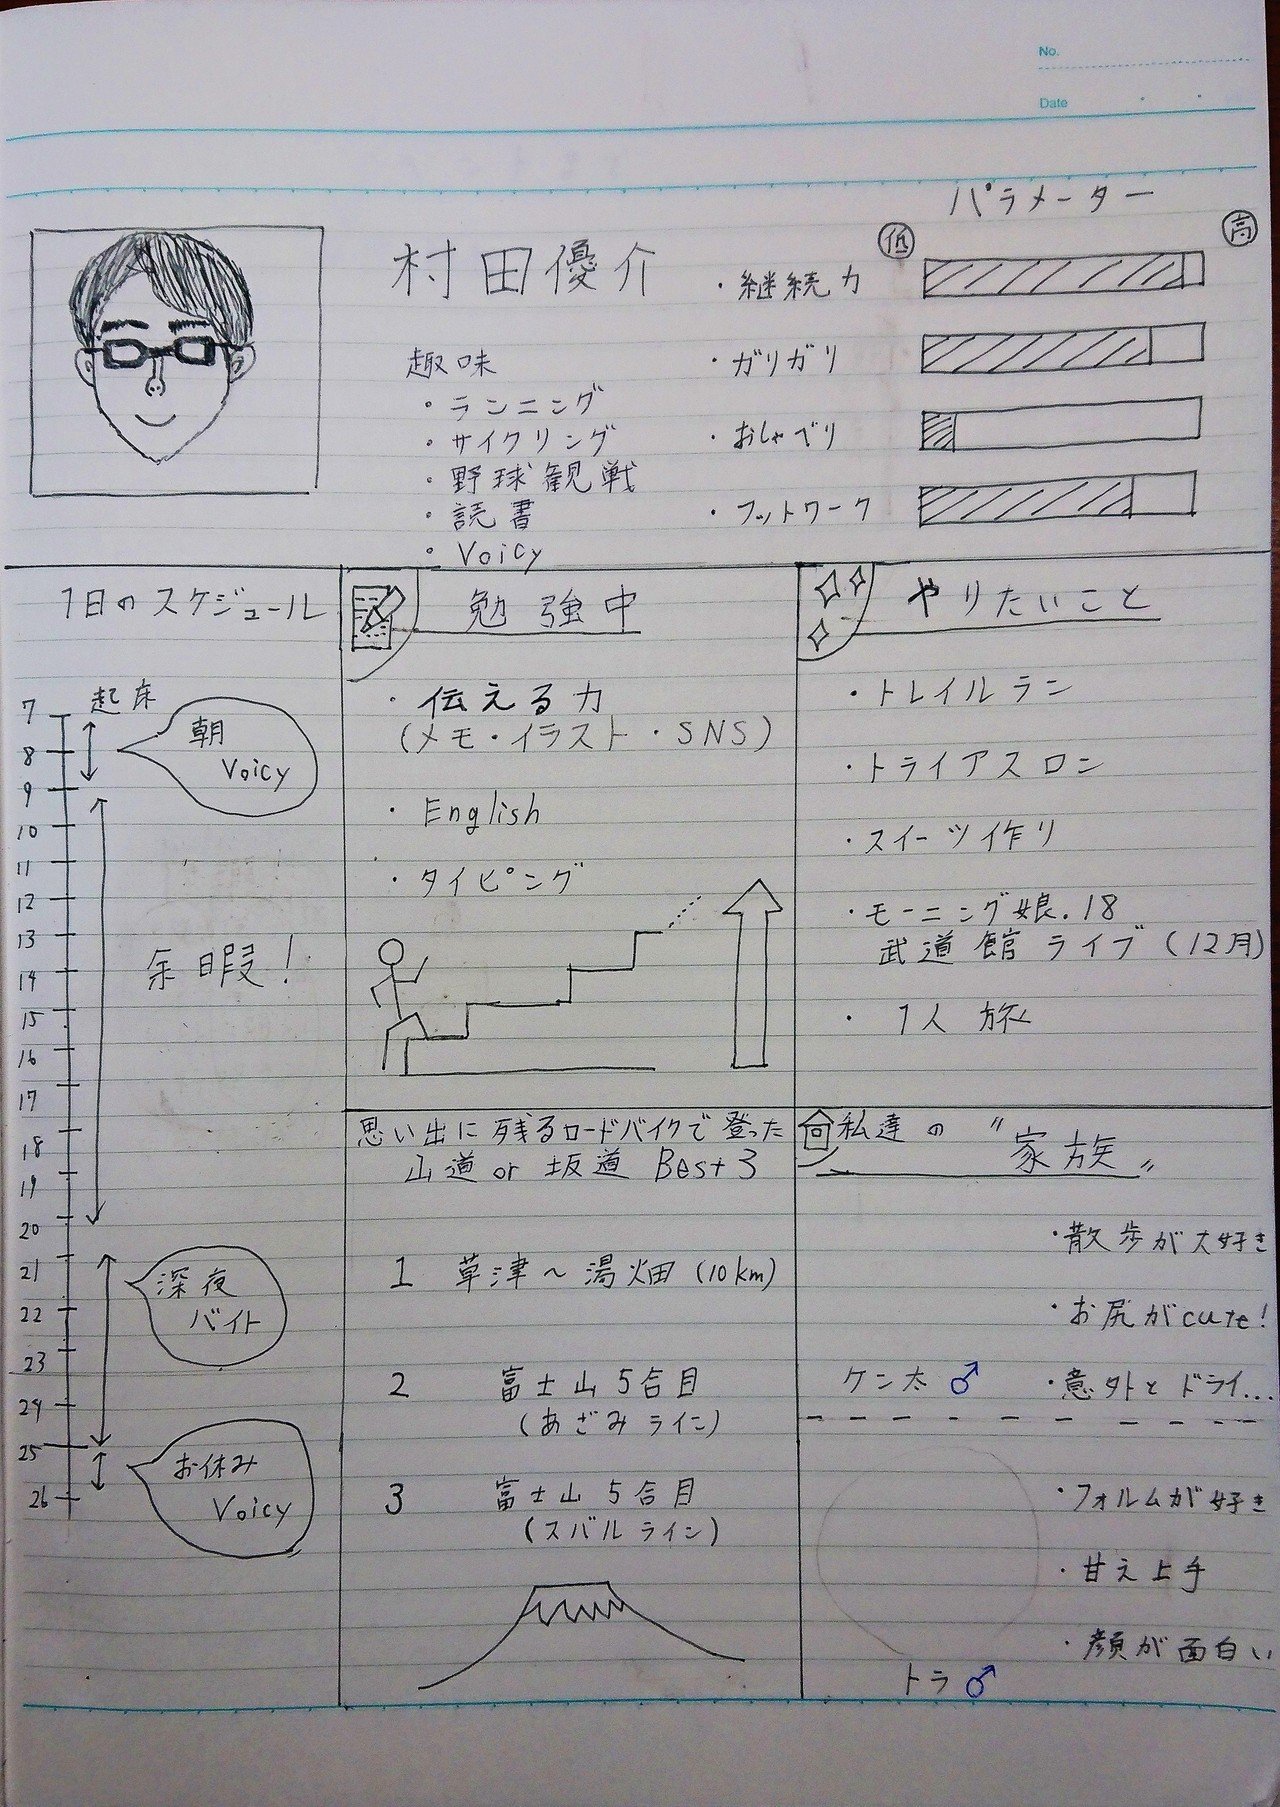 No.
Date
パラメーター
低
高
村田優介
・継続力
・ガリガリ
・おしゃべり
・フットワーク
趣味
・ランニング
・サイクリング
・野球観戦
・読書
・Voicy
1日のスケジュール
7
起床
8
9
10
11
12
13
14
15
16
17
18
19
20
21
22
23
24
25
26
朝
Voicy
余暇!
深夜
バイト
お休み
Voicy
勉強中
・伝える力
(メモ・イラスト・SNS)
・English
・タイピング
やりたいこと
・トレイルラン
・トライアスロン
・スイーツ作り
・モーニング娘.18
武道館ライブ(12月)
・1人旅
思い出に残るロードバイクで登った
山道or坂道 Best3
1 草津~湯畑(10km)
2 富士山5合目
(あざみライン)
3 富士山5合目
(スバルライン)
私達の〝家族〟
・散歩が大好き
・お尻がcute!
・意外とドライ...
ケン太♂
・フォルムが好き
・甘え上手
・顔が面白い
トラ♂